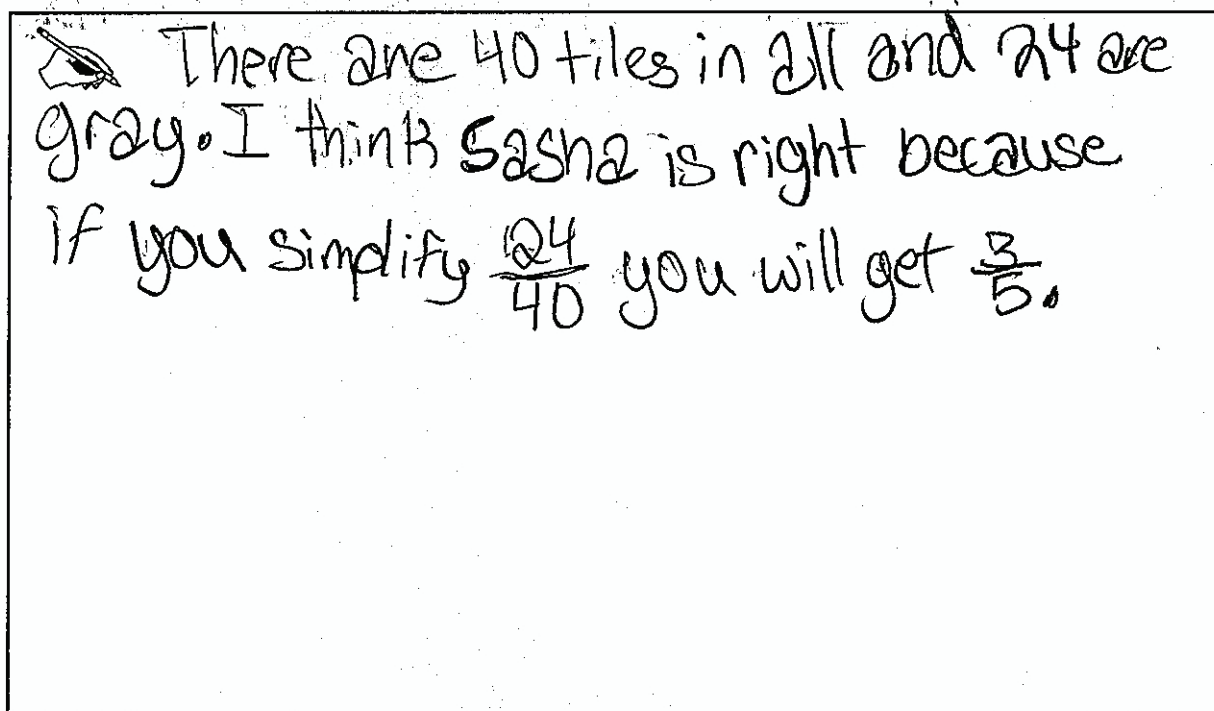 There are 40 tiles in all and 24 are
gray. I think Sasha is right because
if you simplify 24/40 you will get 3/5.